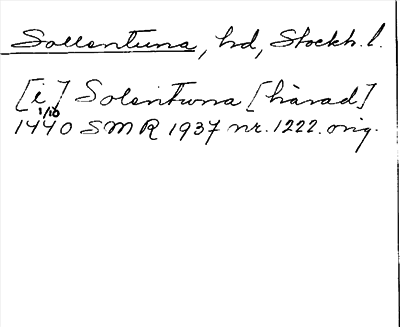 Sollentuna, hd, Stockh. l.
[i] Solentuna [härad]
1/10
1440 SMR 1937 nr. 1222. orig.